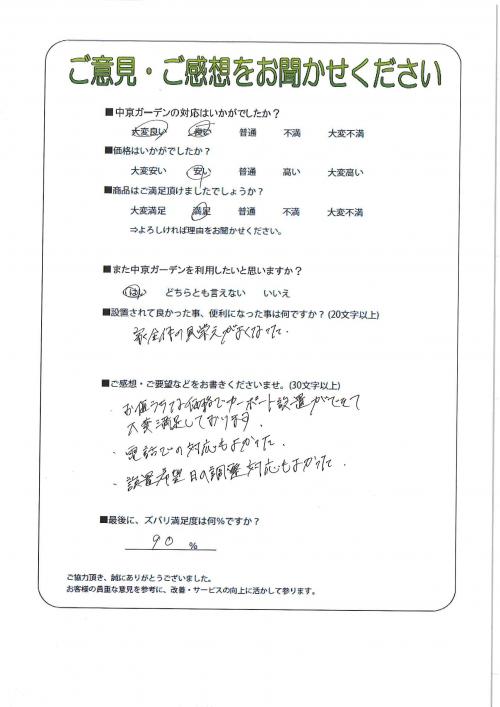 ご意見・ご感想をお聞かせください
■中京ガーデンの対応はいかがでしたか？
大変良い 良い 普通 不満 大変不満
■価格はいかがでしたか？
大変安い 安い 普通 高い 大変高い
■商品はご満足頂けましたでしょうか？
大変満足 満足 普通 不満 大変不満
⇒よろしければ理由をお聞かせください。
■また中京ガーデンを利用したいと思いますか？
はい どちらとも言えない いいえ
■設置されて良かった事、便利になった事は何ですか？(20文字以上)
家全体の見栄えがよくなった.
■ご感想・ご要望などをお書きくださいませ。(30文字以上)
・お値うちな価格でカーポート設置ができて
大変満足しております.
・電話での対応もよかった.
・設置希望日の調整対応もよかった.
■最後に、ズバリ満足度は何％ですか？
90 ％
ご協力頂き、誠にありがとうございました。
お客様の貴重な意見を参考に、改善・サービスの向上に活かして参ります。